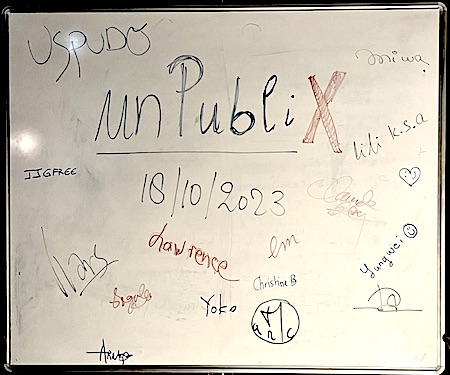 USPUDO
miwa
unPubliX
lili k.s.a
JJGFREE
18/10/2023
Claude
Lawrence
em
Yungwei
Christine B
Yoko